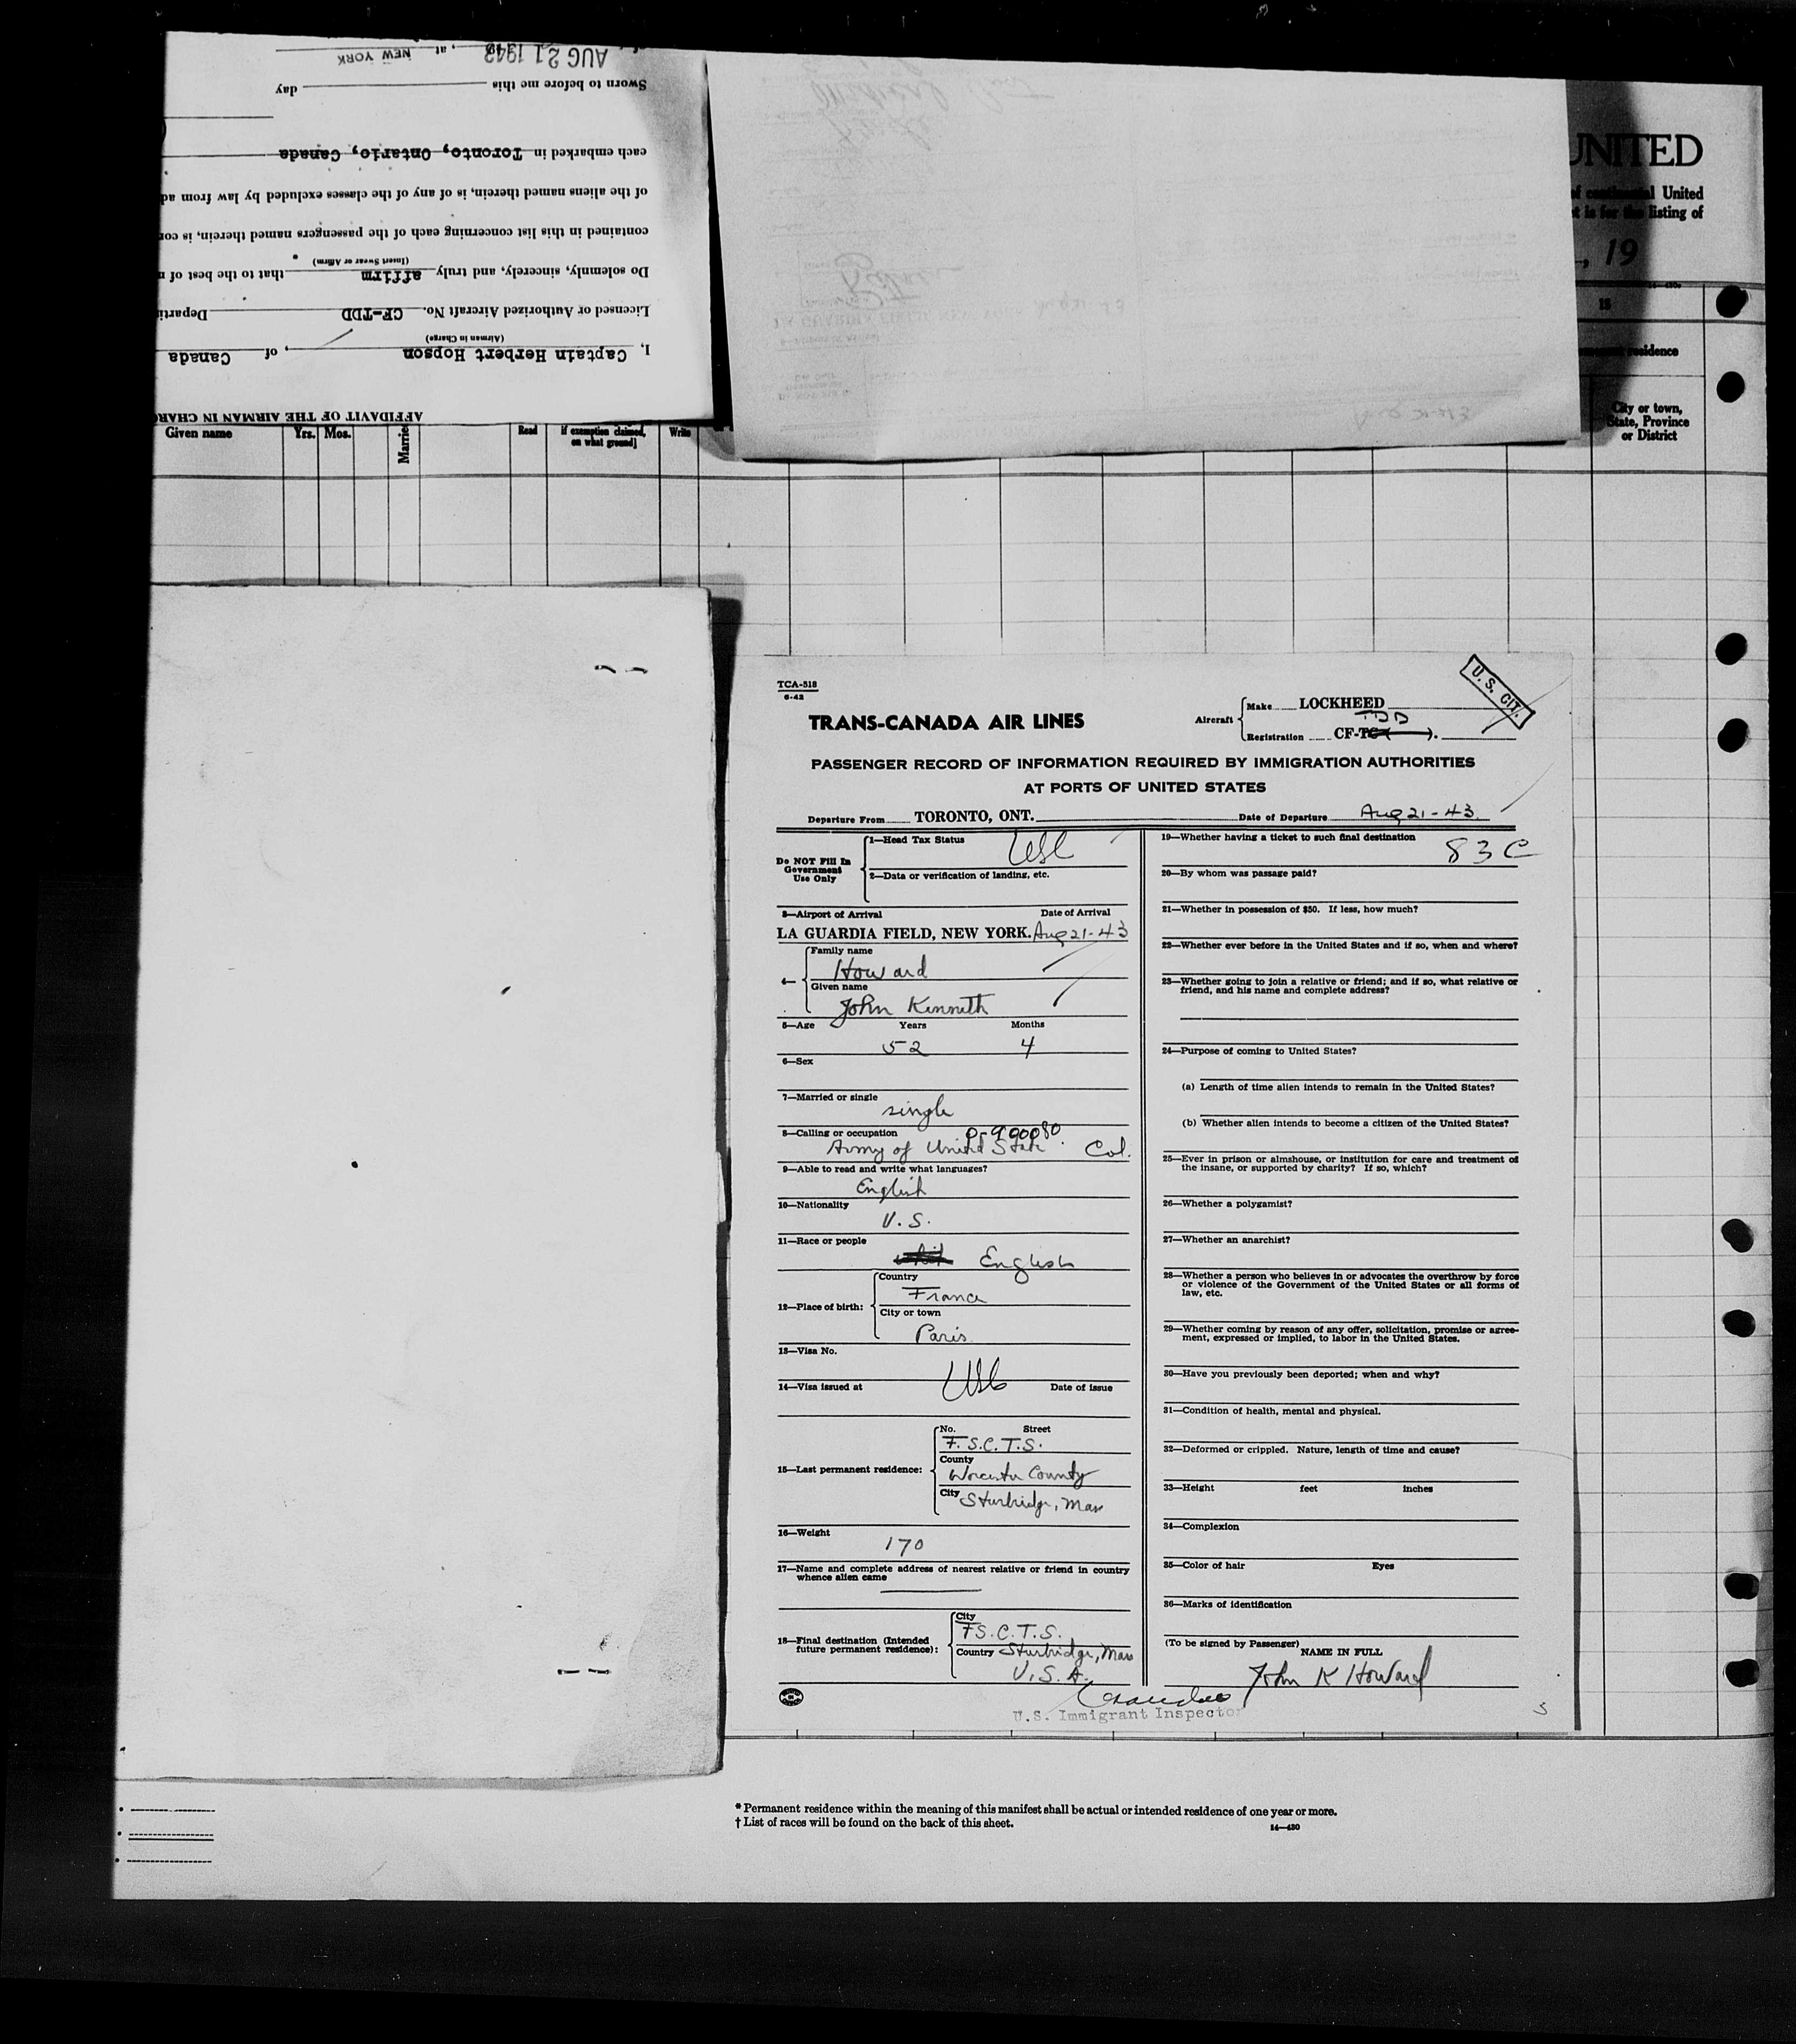 AUG 21 1943, at NEW YORK
Sworn to before me this day
each embarked in Toronto, Ontario, Canada
of the aliens named therein, is of any of the classes excluded by law from ad
contained in this list concerning each of the passengers named therein, is cor
Do solemnly, sincerely, and truly affirm that to the best of
(Insert Swear or Affirm)
Licensed or Authorized Aircraft No. CF-TDD Departi
(Airman in Charge)
I, Captain Herbert Hopson, of Canada
AFFIDAVIT OF THE AIRMAN IN CHARG
UNITED
of continental United
t is for the listing of
, 19
15
residence
City or town,
State, Province
or District
Given name Yrs. Mos. Married Read if exemption claimed, Write
on what ground]
TCA-518
6-42
U. S. CIT.
TRANS-CANADA AIR LINES
Aircraft Make LOCKHEED
TDD
Registration CF-TC ( ).
PASSENGER RECORD OF INFORMATION REQUIRED BY IMMIGRATION AUTHORITIES
AT PORTS OF UNITED STATES
Departure From TORONTO, ONT. Date of Departure Aug 21-43
Do NOT Fill In
Government
Use Only
1—Head Tax Status USC
2—Data or verification of landing, etc.
3—Airport of Arrival Date of Arrival
LA GUARDIA FIELD, NEW YORK. Aug 21-43
4— Family name
Howard
Given name
John Kenneth
5—Age Years Months
52 4
6—Sex
7—Married or single
single
8—Calling or occupation O-900080
Army of United State Col.
9—Able to read and write what languages?
English
10—Nationality
U.S.
11—Race or people
English
12—Place of birth: Country
France
City or town
Paris
13—Visa No.
USC
14—Visa issued at Date of issue
15—Last permanent residence: No. Street
F.S.C.T.S.
County
Worcester County
City Sturbridge, Mass
16—Weight
170
17—Name and complete address of nearest relative or friend in country
whence alien came
18—Final destination (Intended
future permanent residence):
City
FS.C.T.S.
Country Sturbridge, Mass
U.S.A.
U.S. Immigrant Inspector
19—Whether having a ticket to such final destination
83C
20—By whom was passage paid?
21—Whether in possession of $50. If less, how much?
22—Whether ever before in the United States and if so, when and where?
23—Whether going to join a relative or friend; and if so, what relative or
friend, and his name and complete address?
24—Purpose of coming to United States?
(a) Length of time alien intends to remain in the United States?
(b) Whether alien intends to become a citizen of the United States?
25—Ever in prison or almshouse, or institution for care and treatment of
the insane, or supported by charity? If so, which?
26—Whether a polygamist?
27—Whether an anarchist?
28—Whether a person who believes in or advocates the overthrow by force
or violence of the Government of the United States or all forms of
law, etc.
29—Whether coming by reason of any offer, solicitation, promise or agree-
ment, expressed or implied, to labor in the United States.
30—Have you previously been deported; when and why?
31—Condition of health, mental and physical.
32—Deformed or crippled. Nature, length of time and cause?
33—Height feet inches
34—Complexion
35—Color of hair Eyes
36—Marks of identification
(To be signed by Passenger)
NAME IN FULL
John K Howard
* Permanent residence within the meaning of this manifest shall be actual or intended residence of one year or more.
† List of races will be found on the back of this sheet.
14—430